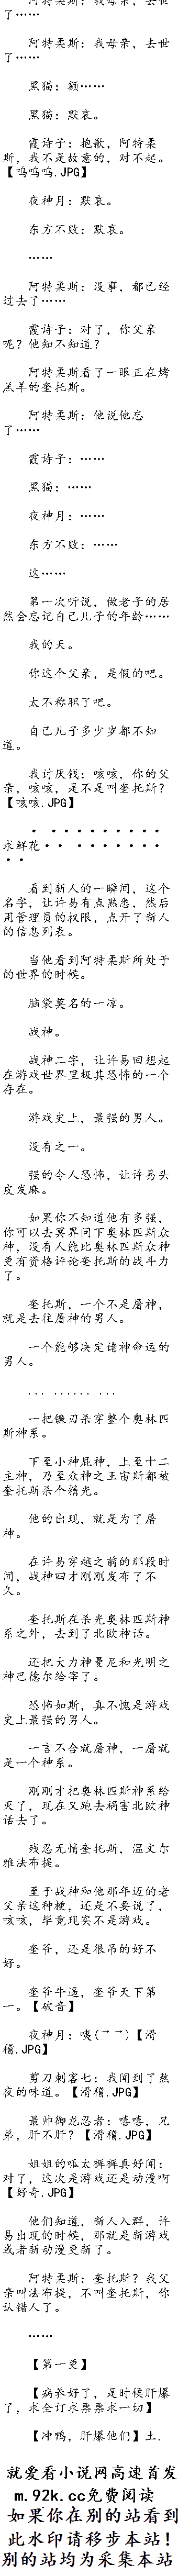 阿特柔斯：我母亲，去世
了……
阿特柔斯：我母亲，去世
了……
黑猫：额……
黑猫：默哀。
霞诗子：抱歉，阿特柔
斯，我不是故意的，对不起。
【呜呜呜.JPG】
夜神月：默哀。
东方不败：默哀。
……
阿特柔斯：没事，都已经
过去了……
霞诗子：对了，你父亲
呢？他知不知道？
阿特柔斯看了一眼正在烤
羔羊的奎托斯。
阿特柔斯：他说他忘
了……
霞诗子：……
黑猫：……
夜神月：……
东方不败：……
这……
第一次听说，做老子的居
然会忘记自己儿子的年龄……
我的天。
你这个父亲，是假的吧。
太不称职了吧。
自己儿子多少岁都不知
道。
我讨厌钱：咳咳，你的父
亲，咳咳，是不是叫奎托斯？
【咳咳.JPG】
· ·········
求鲜花·· ········
··
看到新人的一瞬间，这个
名字，让许易有点熟悉，然后
用管理员的权限，点开了新人
的信息列表。
当他看到阿特柔斯所处于
的世界的时候。
脑袋莫名的一凉。
战神。
战神二字，让许易回想起
在游戏世界里极其恐怖的一个
存在。
游戏史上，最强的男人。
没有之一。
强的令人恐怖，让许易头
皮发麻。
如果你不知道他有多强，
你可以去冥界问下奥林匹斯众
神，没有人能比奥林匹斯众神
更有资格评论奎托斯的战斗力
了。
奎托斯，一个不是屠神，
就是去往屠神的男人。
一个能够决定诸神命运的
男人。
... ...... ...
一把镰刃杀穿整个奥林匹
斯神系。
下至小神屁神，上至十二
主神，乃至众神之王宙斯都被
奎托斯杀个精光。
他的出现，就是为了屠
神。
在许易穿越之前的那段时
间，战神四才刚刚发布了不
久。
奎托斯在杀光奥林匹斯神
系之外，去到了北欧神话。
还把大力神曼尼和光明之
神巴德尔给宰了。
恐怖如斯，真不愧是游戏
史上最强的男人。
一言不合就屠神，一屠就
是一个神系。
刚刚才把奥林匹斯神系给
灭了，现在又跑去祸害北欧神
话去了。
残忍无情奎托斯，温文尔
雅法布提。
至于战神和他那年迈的老
父亲这种梗，还是不要说了，
咳咳，毕竟现实不是游戏。
奎爷，还是很吊的好不
好。
奎爷牛逼，奎爷天下第
一。【破音】
夜神月：咦(￢￢)【滑
稽.JPG】
剪刀刺客七：我闻到了熬
夜的味道。【滑稽.JPG】
最帅御龙忍者：嘻嘻，兄
弟，肝不肝？【滑稽.JPG】
姐姐的呱太裤裤真好闻：
对了，这次是游戏还是动漫啊
【好奇.JPG】
他们知道，新人入群，许
易出现的时候，那就是新游戏
或者新动漫更新了。
阿特柔斯：奎托斯？我父
亲叫法布提，不叫奎托斯，你
认错人了。
……
【第一更】
【病养好了，是时候肝爆
了，求全订求票票求一切】
【冲鸭，肝爆他们】土.
就爱看小说网高速首发
m.92k.cc免费阅读
如果你在别的站看到
此水印请移步本站！
别的站均为采集本站